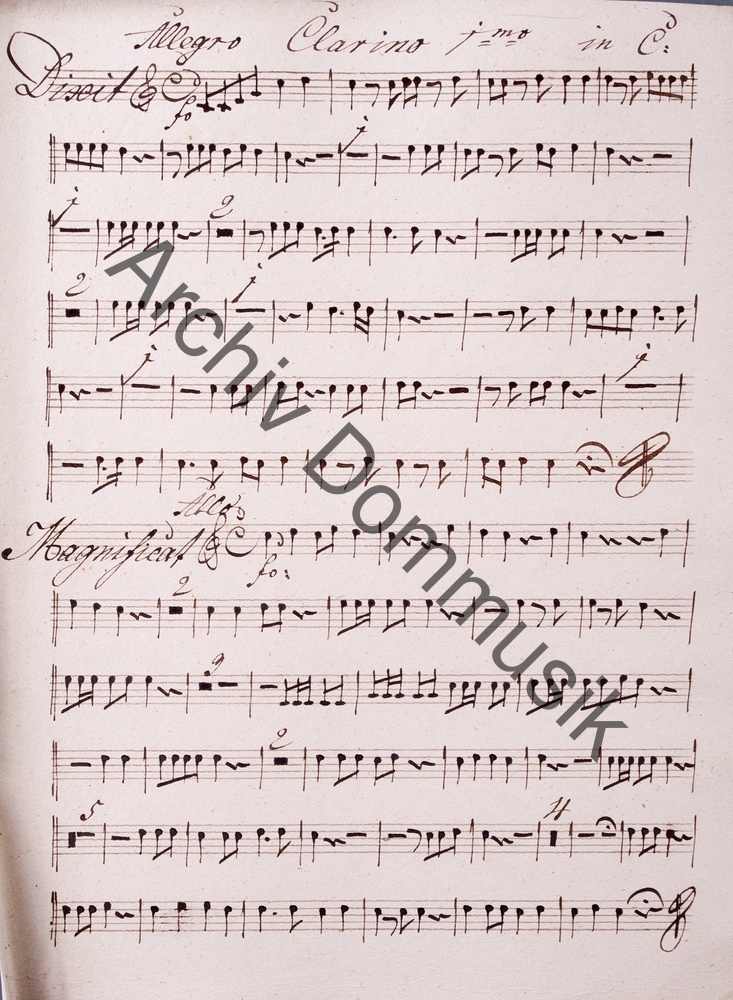 Allegro Clarino 1mo in C:
Dixit
fo
1
1 2
2 1
1 1
Allo
Magnificat
fo:
2
2
2
5 4
Archiv Dommusik